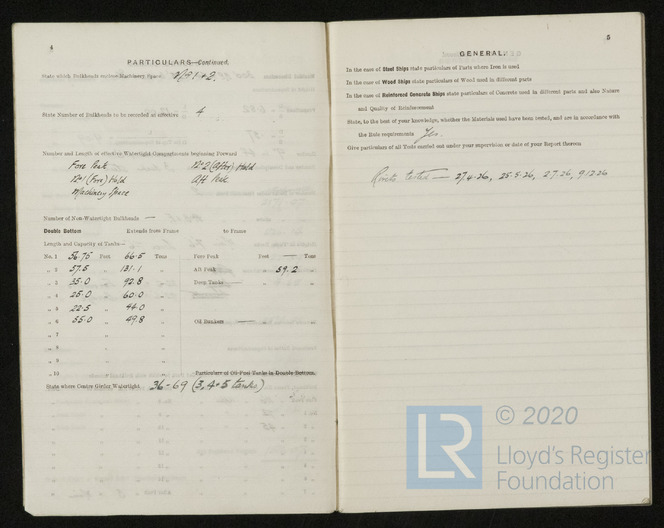 4
PARTICULARS—Continued.
State which Bulkheads enclose Machinery Space Nos 1 & 2.
State Number of Bulkheads to be recorded as effective 4
Number and Length of effective Watertight Compartments beginning Forward
Fore Peak No 2 (Aftr) Hold
No 1 (Fore) Hold Aft Peak
Machinery Space
Number of Non-Watertight Bulkheads —
Double Bottom Extends from Frame to Frame
Length and Capacity of Tanks—
No. 1 56.75 Feet 66.5 Tons Fore Peak Feet — Tons
„ 2 57.5 „ 131.1 „ Aft Peak „ 59.2 „
„ 3 35.0 „ 92.8 „ Deep Tanks — „ „
„ 4 25.0 „ 60.0 „
„ 5 22.5 „ 44.0 „
„ 6 55.0 „ 49.8 „ Oil Bunkers —
„ 7
„ 8
„ 9
„ 10 Particulars of Oil Fuel Tanks in Double Bottom.
State where Centre Girder Watertight 36-69 (3, 4 & 5 tanks)
5
GENERAL.
In the case of Steel Ships state particulars of Parts where Iron is used
In the case of Wood Ships state particulars of Wood used in different parts
In the case of Reinforced Concrete Ships state particulars of Concrete used in different parts and also Nature
and Quality of Reinforcement
State, to the best of your knowledge, whether the Materials used have been tested, and are in accordance with
the Rule requirements Yes.
Give particulars of all Tests carried out under your supervision or date of your Report thereon
tested — 27.4.26, 25.5.26, 2.7.26, 9.12.26
LR
© 2020
Lloyd's Register
Foundation